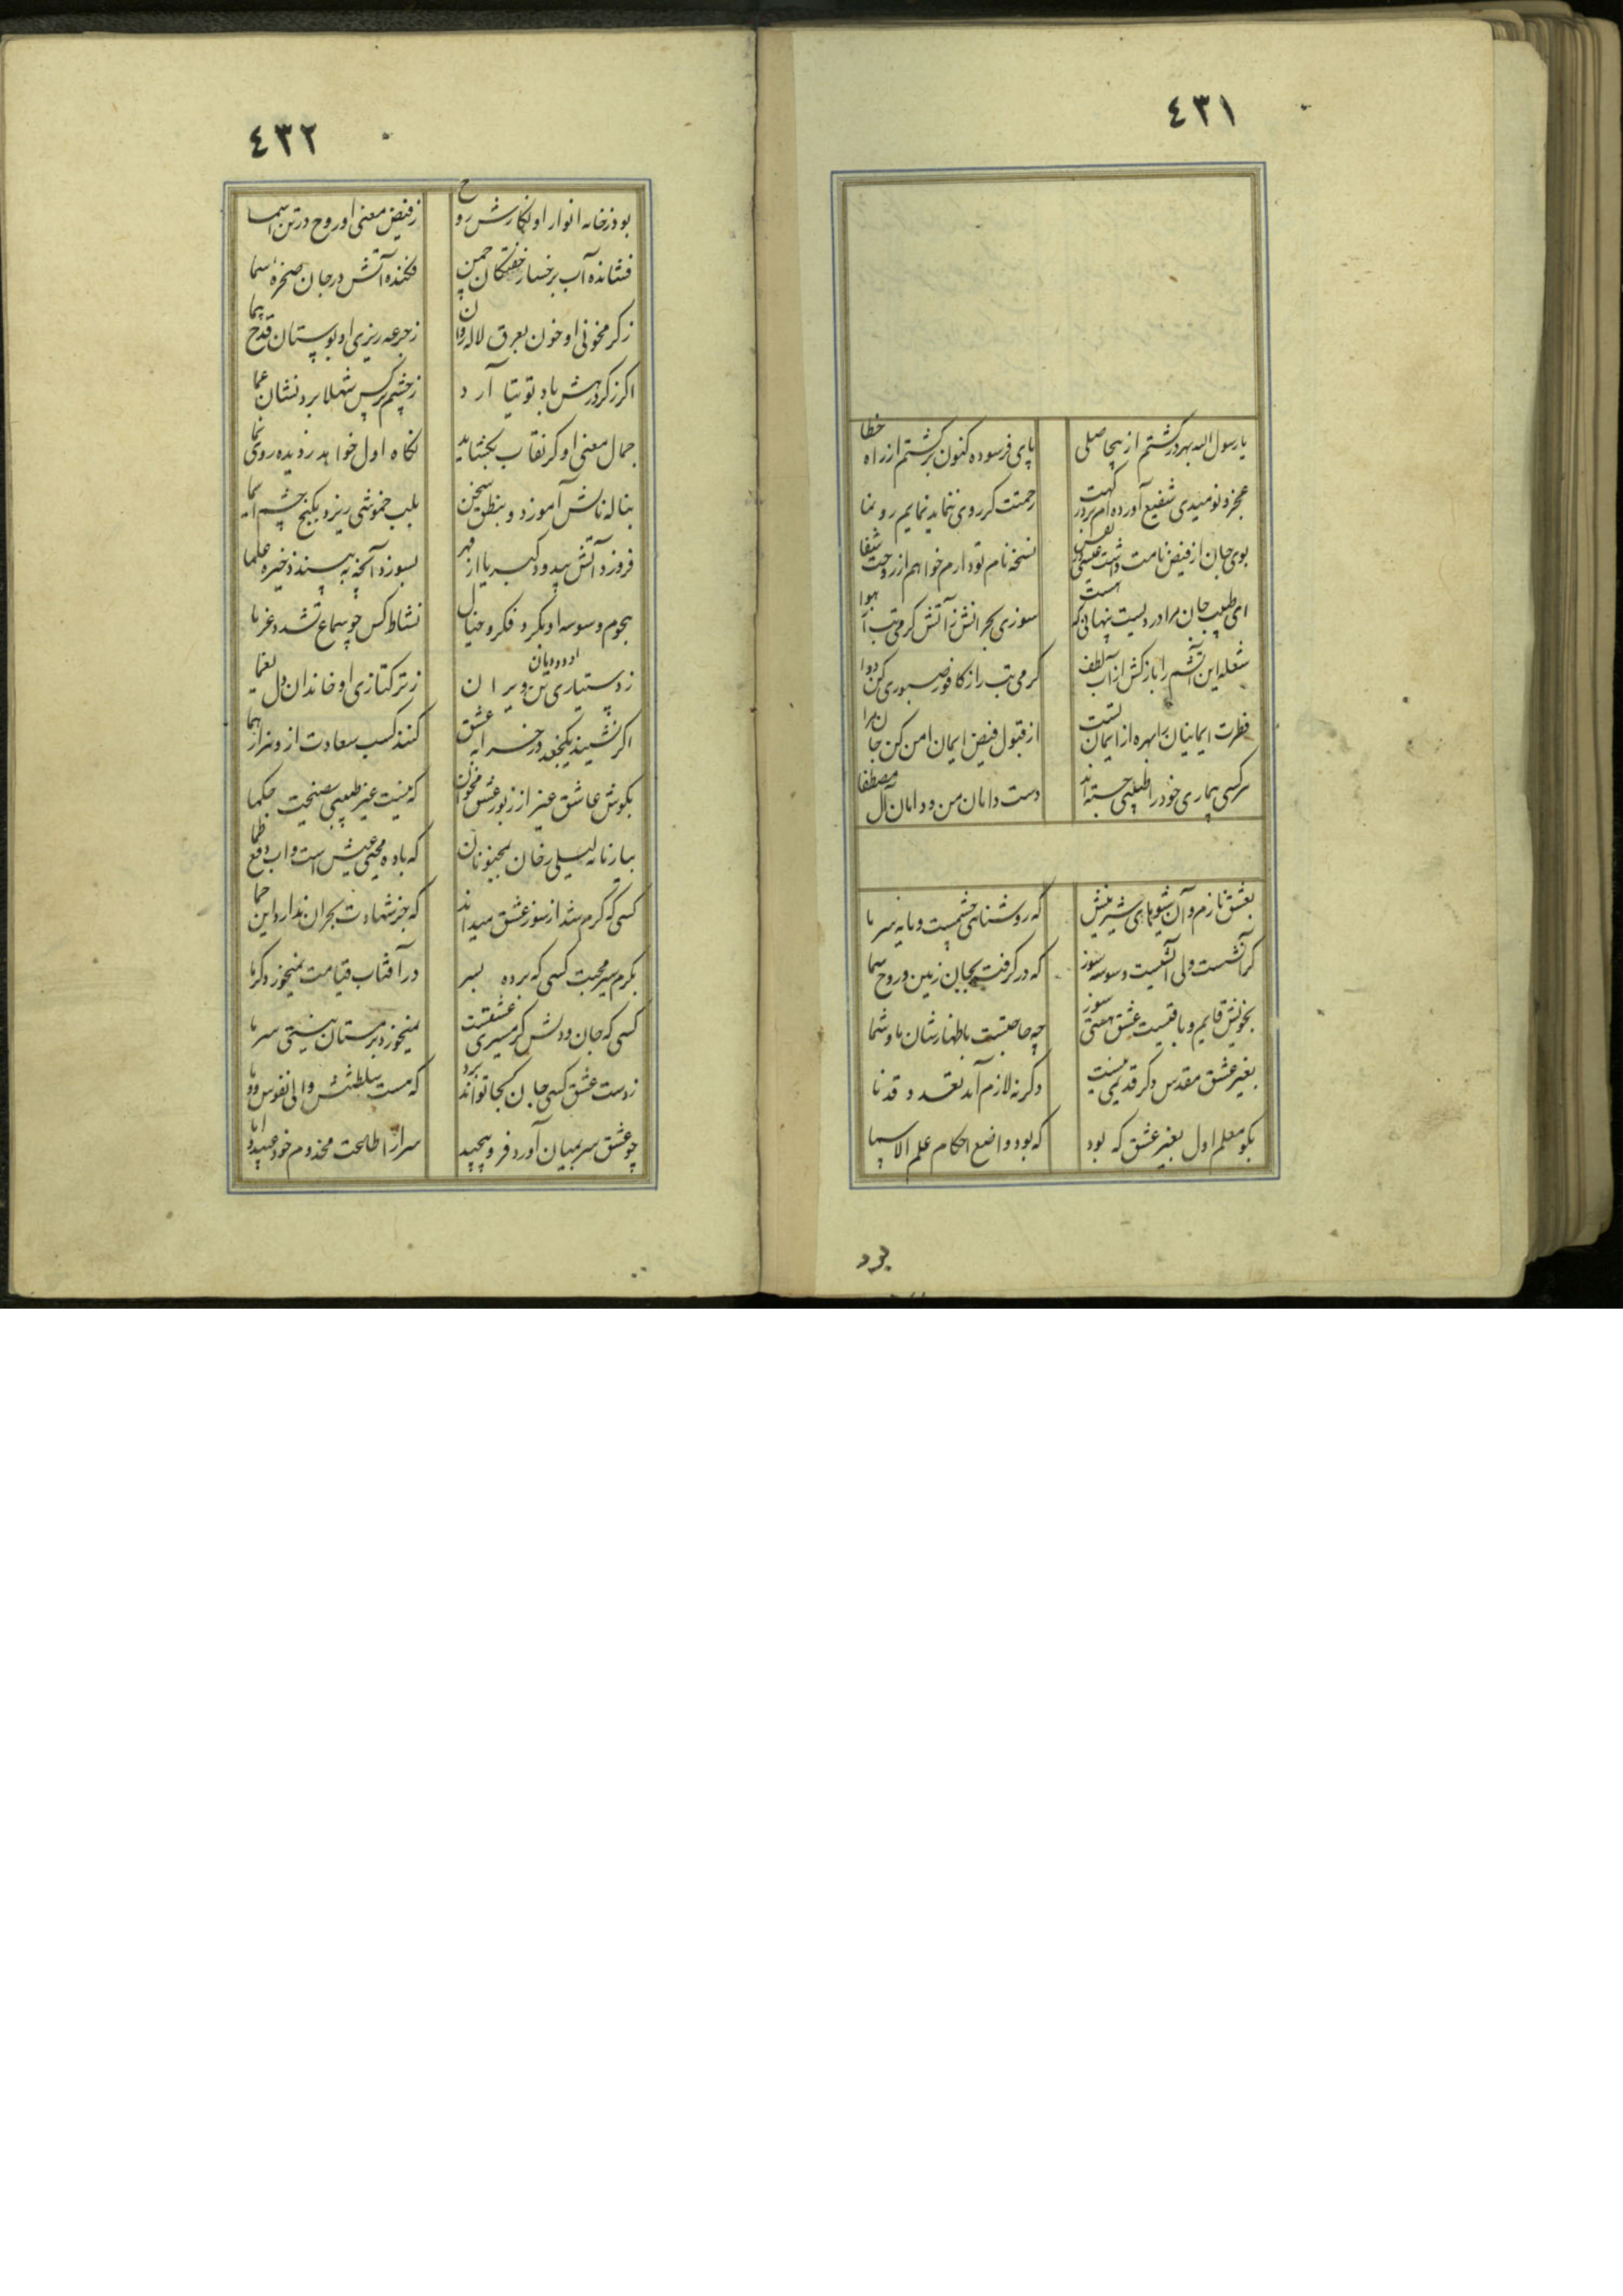 ٤٣١
یا رسول الله بهر در گشتم از بیحاصلی
پای فرسوده کنون برگشتم از راه خطا
عجز و نومیدی شفیع آورده ام بر در گهت
رحمتت گر روی ننماید نمایم رو نما
بوی جان از فیض نامت داشت عیسی نفس
نسخه نام تو دارم خواهم از روحت شفا
ای طبیب جان مرا دردیست پنهانی که هست
سوزی بحرانش ز آتش گرمی تب از هوا
شعله این آتشم را باز کش از آب لطف
گرمی تب را ز کافور صبوری کن دوا
فطرت ایمانیان را بهره از ایمان تست
از قبول فیض ایمان امن کن جان مرا
هر کسی بیماری خود را طبیبی جسته اند
دست دامان من و دامان آل مصطفا
بعشق نازم و آن شیوهای شیرینش
که روشنائی چشمست و مایه سرما
گر آتشست ولی آتشیست وسوسه سوز
که در گرفت بجان زمین و روح سما
بخویش قایم و باقیست عشق هستی سوز
چه حاجتست باظهارشان ما و شما
بغیر عشق مقدس دگر قدیمی نیست
وگرنه لازم آید تعدد قدما
بگو معلم اول بغیر عشق که بود
که بود واضع احکام علم الاسما
بود
٤٣٢
بود ز خانه انوار او نگارش روح
ز فیض معنی او روح در تن اسما
فشانده آب برخسار خفتگان چمن
فکنده آتش در جان صخره صما
ز گرمخونی او خون بعرق لاله روان
ز جرعه ریزی او بوستان قدح پیما
اگر ز گرد رهش باد توتیا آرد
ز چشم نرگس شهلا برد نشان عما
جمال معنی او گر نقاب بگشاید
نگاه اول خواهد ز دیده روی نما
بناله نالش آموزد و بنطق سخن
بلب خموشی ریزد بکنج چشم ایما
فروزد آتش بیدود کبریا از قهر
بسوزد آنچه به بیند ذخیره علما
هجوم وسوسه او نگردد فکر و خیال
نشاط کس چو سماع تشدد غرما
ز دستیاری او دودمان تن ویران
ز ترکتازی او خاندان دل یغما
اگر نشیند یکچغد در خرابه عشق
کنند کسب سعادت ازو هزار هما
بگوش عاشق غیر از زبور عشق مخوان
که نیست غیر طبیبی نصیحت حکما
بیار نامه لیلی رخان بمجنونان
که باده محیی عیش است و آب دفع ظما
کسی که گرم شد از سوز عشق میداند
که جز شهادت بحران ندارد این حما
بگرم سیر محبت کسی که برده بسر
در آفتاب قیامت نمیخورد گرما
کسی که جان و دلش گرمسیری عشقست
نمیخورد بزمستان نیستی سرما
ز دست عشق کسی جان کجا تواند برد
که هست سلطنتش والی نفوس و دما
چو عشق سر بمیان آورد فرو پیچید
سر از اطاعت مخدوم خود عبید و اما